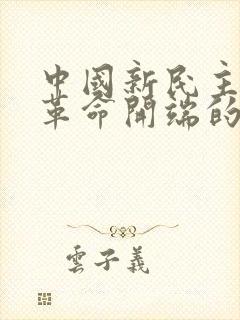 中國新民主
革命開端的
雲子義